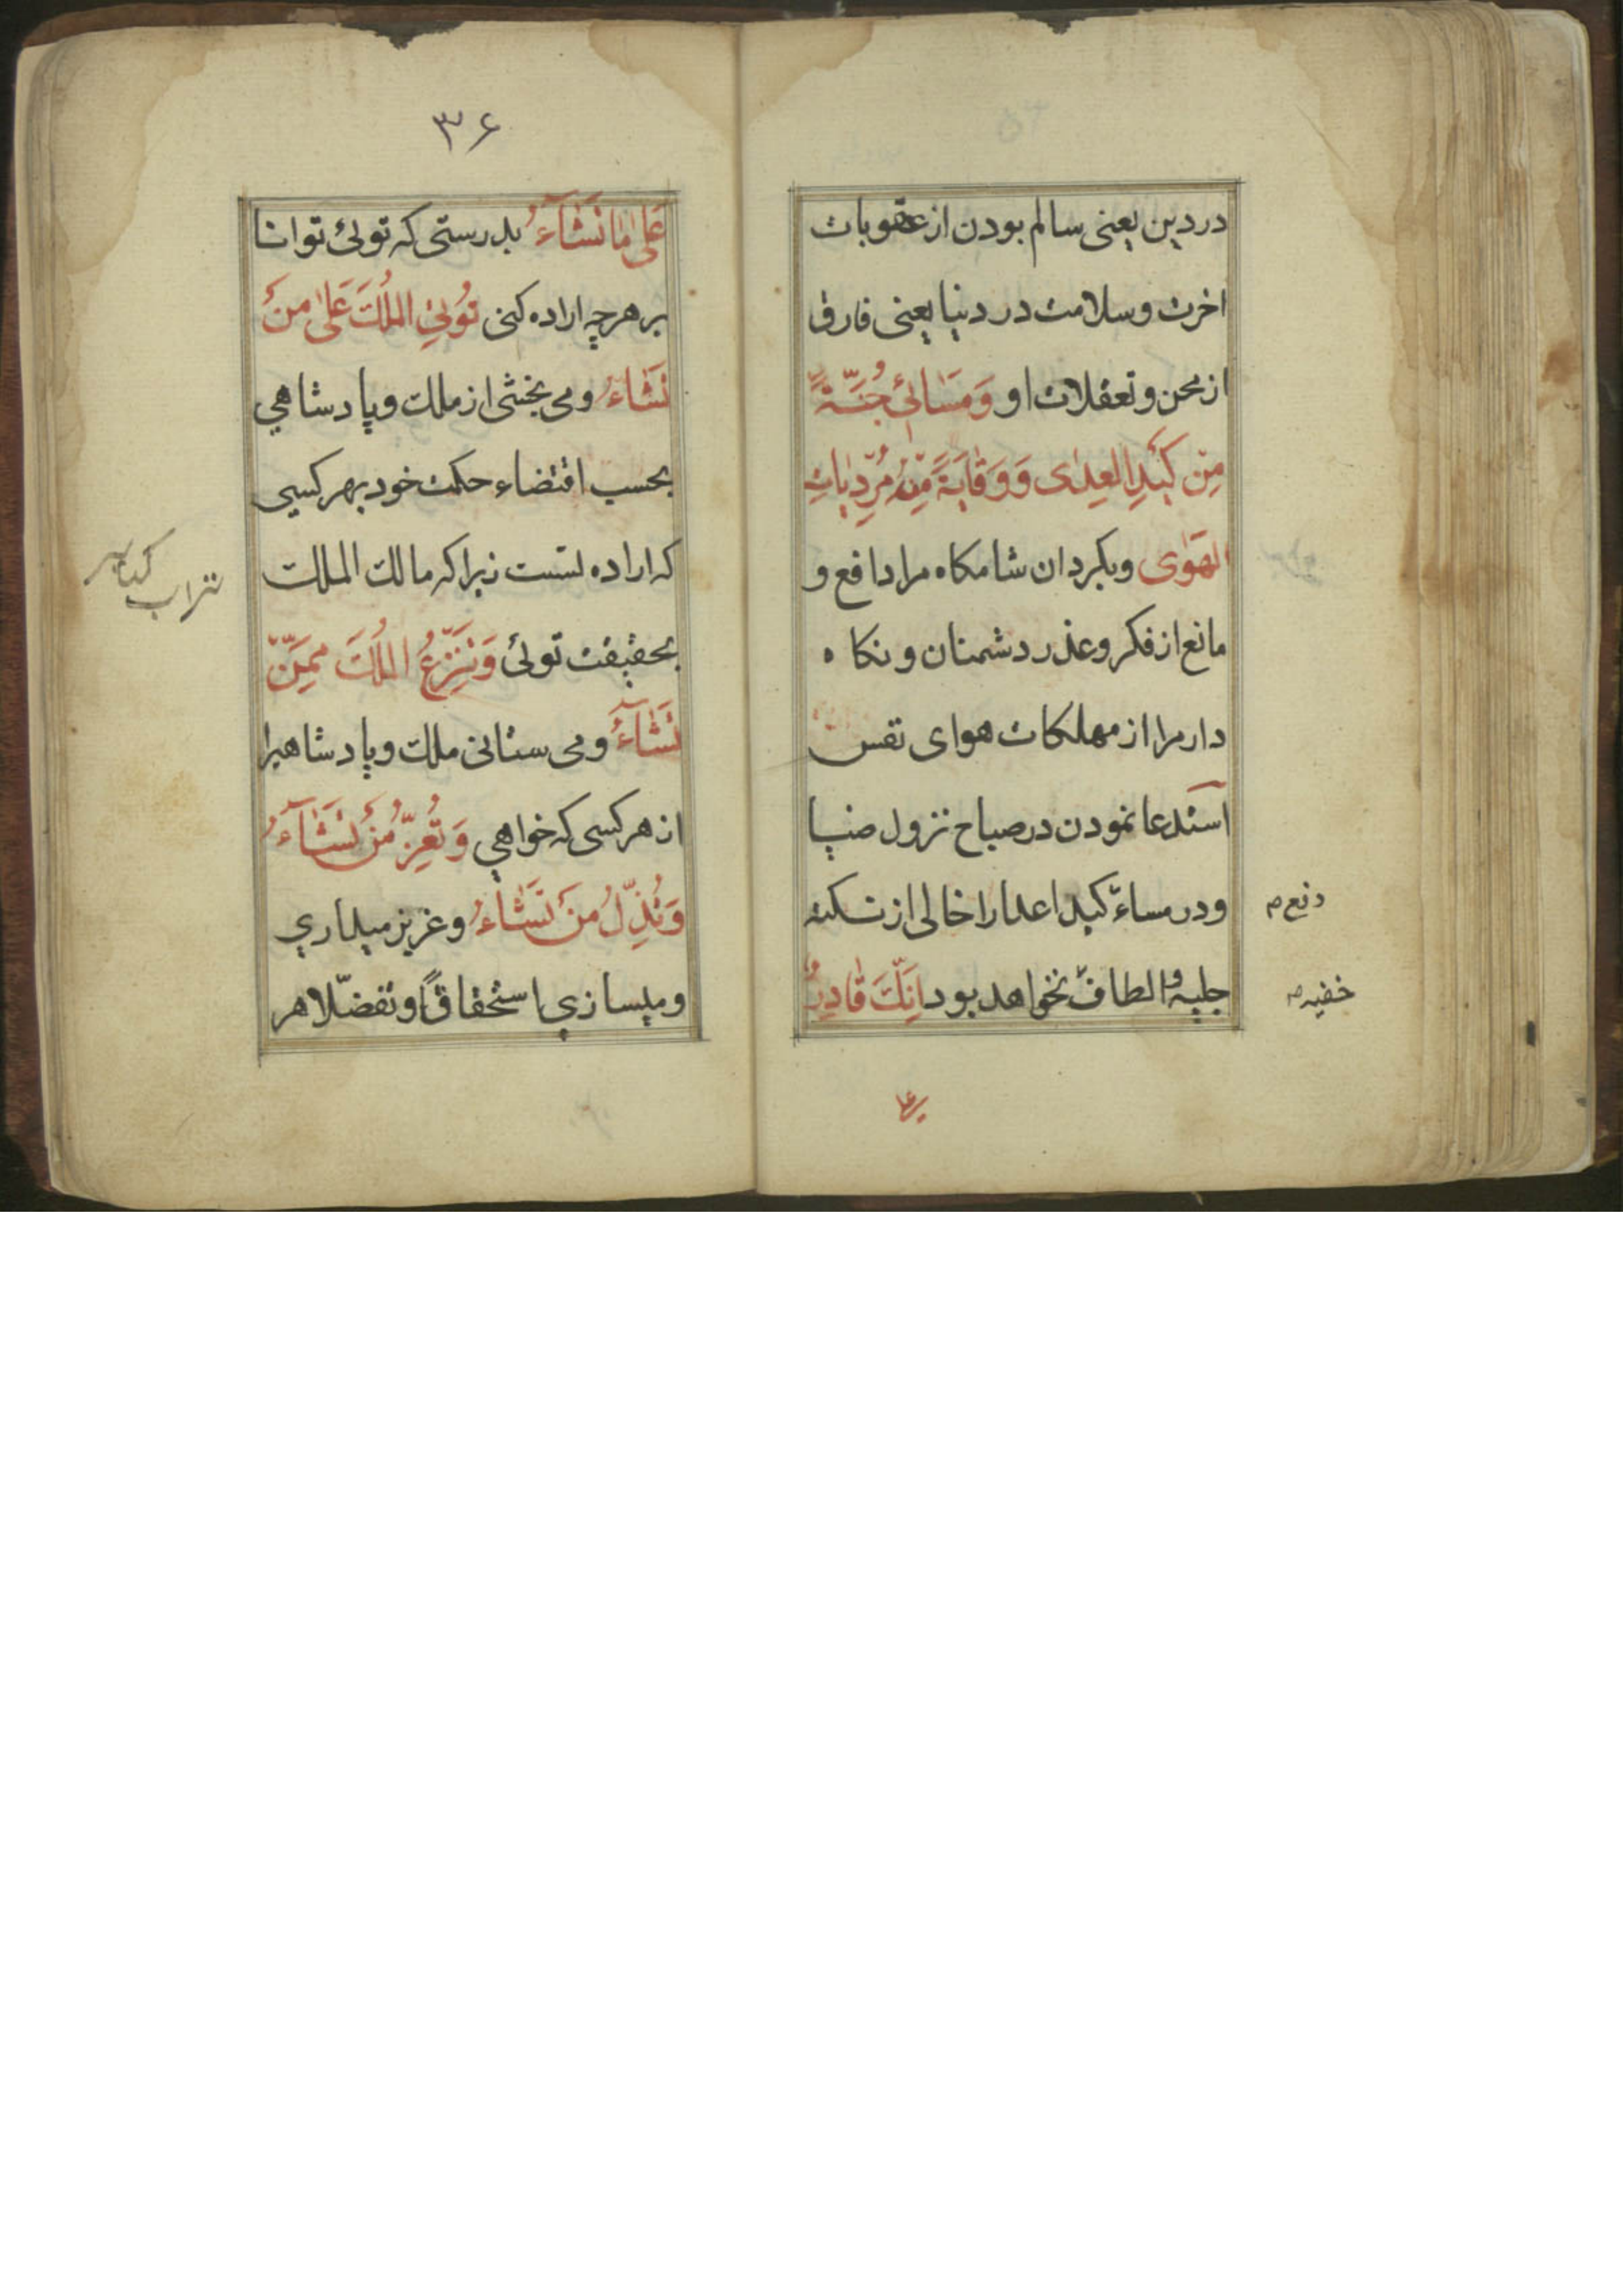 در دین یعنی سالم بودن از عقوبات
اخرت و سلامت در دنیا یعنی فارق
از محن و تعقلات او وَمَسَائی جُنَّةً
مِن کَیدِ العِدٰی وَ وَقایَةً مِن مُردِیاتِ
الهَوٰی و بکردان شامکاه مرا دافع و
مانع از فکر و غدر دشمنان و نکاه
دار مرا از مهلکات هوای نفس
استدعا نمودن در صباح نزول ضیا
و در مساء کید اعدا را خالی از نکته
دفع م
جلیه و الطاف نخواهد بود اِنَّکَ قادِرٌ
خفیه م
۳۶
عَلٰی مٰا تَشَآءُ بدرستی که توئی توانا
بر هرچه اراده کنی تُؤتِی المُلکَ مَن
تَشَاءُ و می بخشی از ملک و پادشاهی
بحسب اقتضاء حکمت خود بهر کسی
که اراده تست زیرا که مالک الملک
بحقیقت توئی وَتَنزِعُ المُلکَ مِمَّن
تَشَآءُ و می ستانی ملک و پادشاهیرا
از هر کسی که خواهی وَتُعِزُّ مَن تَشَآءُ
وَتُذِلُّ مَن تَشَاءُ و عزیز میداری
و میسازی استحقاقًا و تفضّلا هر